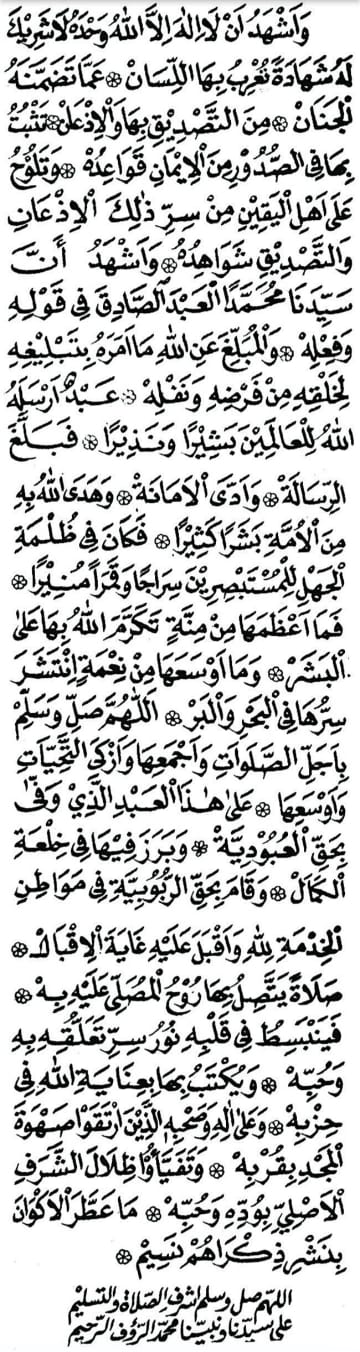 وَاَشْهَدُ اَنْ لَااِلٰهَ اِلَّا اللّٰهُ وَحْدَهُ لَاشَرِيْكَ
لَهُ شَهَادَةً تُعْرِبُ بِهَا اللِّسَانُ ۞ عَمَّا تَضَمَّنَهُ
الْجَنَانُ ۞ مِنَ التَّصْدِيْقِ بِهَا وَالْاِذْعَانِ ۞ تَثْبُتُ
بِهَا فِي الصُّدُوْرِ مِنَ الْاِيْمَانِ قَوَاعِدُهُ ۞ وَتَلُوْحُ
عَلٰى اَهْلِ الْيَقِيْنِ مِنْ سِرِّ ذٰلِكَ الْاِذْعَانِ
وَالتَّصْدِيْقِ شَوَاهِدُهُ ۞ وَاَشْهَدُ اَنَّ
سَيِّدَنَا مُحَمَّدًا الْعَبْدُ الصَّادِقُ فِي قَوْلِهِ
وَفِعْلِهِ ۞ وَالْمُبَلِّغُ عَنِ اللّٰهِ مَا اَمَرَهُ بِتَبْلِيْغِهِ
لِخَلْقِهِ مِنْ فَرْضِهِ وَنَفْلِهِ ۞ عَبْدٌ اَرْسَلَهُ
اللّٰهُ لِلْعَالَمِيْنَ بَشِيْرًا وَنَذِيْرًا ۞ فَبَلَّغَ
الرِّسَالَةَ ۞ وَاَدَّى الْاَمَانَةَ ۞ وَهَدَى اللّٰهُ بِهِ
مِنَ الْاُمَّةِ بَشَرًا كَثِيْرًا ۞ فَكَانَ فِي ظُلْمَةِ
الْجَهْلِ لِلْمُسْتَبْصِرِيْنَ سِرَاجًا وَقَمَرًا مُنِيْرًا ۞
فَمَا اَعْظَمَهَا مِنْ مِنَّةٍ تَكَرَّمَ اللّٰهُ بِهَا عَلَى
الْبَشَرِ ۞ وَمَا اَوْسَعَهَا مِنْ نِعْمَةٍ اِنْتَشَرَ
سِرُّهَا فِي الْبَحْرِ وَالْبَرِّ ۞ اَللّٰهُمَّ صَلِّ وَسَلِّمْ
بِاَجَلِّ الصَّلَوَاتِ وَاَجْمَعِهَا وَاَزْكَى التَّحِيَّاتِ
وَاَوْسَعِهَا ۞ عَلٰى هٰذَا الْعَبْدِ الَّذِيْ وَفّٰى
بِحَقِّ الْعُبُوْدِيَّةِ ۞ وَبَرَزَ فِيْهَا فِي خِلْعَةِ
الْكَمَالِ ۞ وَقَامَ بِحَقِّ الرُّبُوْبِيَّةِ فِي مَوَاطِنِ
الْخِدْمَةِ لِلّٰهِ وَاَقْبَلَ عَلَيْهِ غَايَةَ الْاِقْبَالِ ۞
صَلَاةً يَتَّصِلُ بِهَا رُوْحُ الْمُصَلِّيْ عَلَيْهِ بِهِ ۞
فَيَنْبَسِطُ فِي قَلْبِهِ نُوْرُ سِرِّ تَعَلُّقِهِ بِهِ
وَحُبِّهِ ۞ وَيُكْتَبُ بِهَا بِعِنَايَةِ اللّٰهِ فِي
حِزْبِهِ ۞ وَعَلٰى اٰلِهِ وَصَحْبِهِ الَّذِيْنَ ارْتَقَوْا صَهْوَةَ
الْمَجْدِ بِقُرْبِهِ ۞ وَتَفَيَّأُوْا ظِلَالَ الشَّرَفِ
الْاَصْلِيِّ بِوُدِّهِ وَحُبِّهِ ۞ مَا عَطَّرَ الْاَكْوَانَ
بِنَشْرِ ذِكْرَاهُمْ نَسِيْمٌ ۞
اللّهمّ صل وسلم اشرف الصّلاة والتسليم
على سيّدنا ونبيّنا محمّد الرّؤف الرّحيم